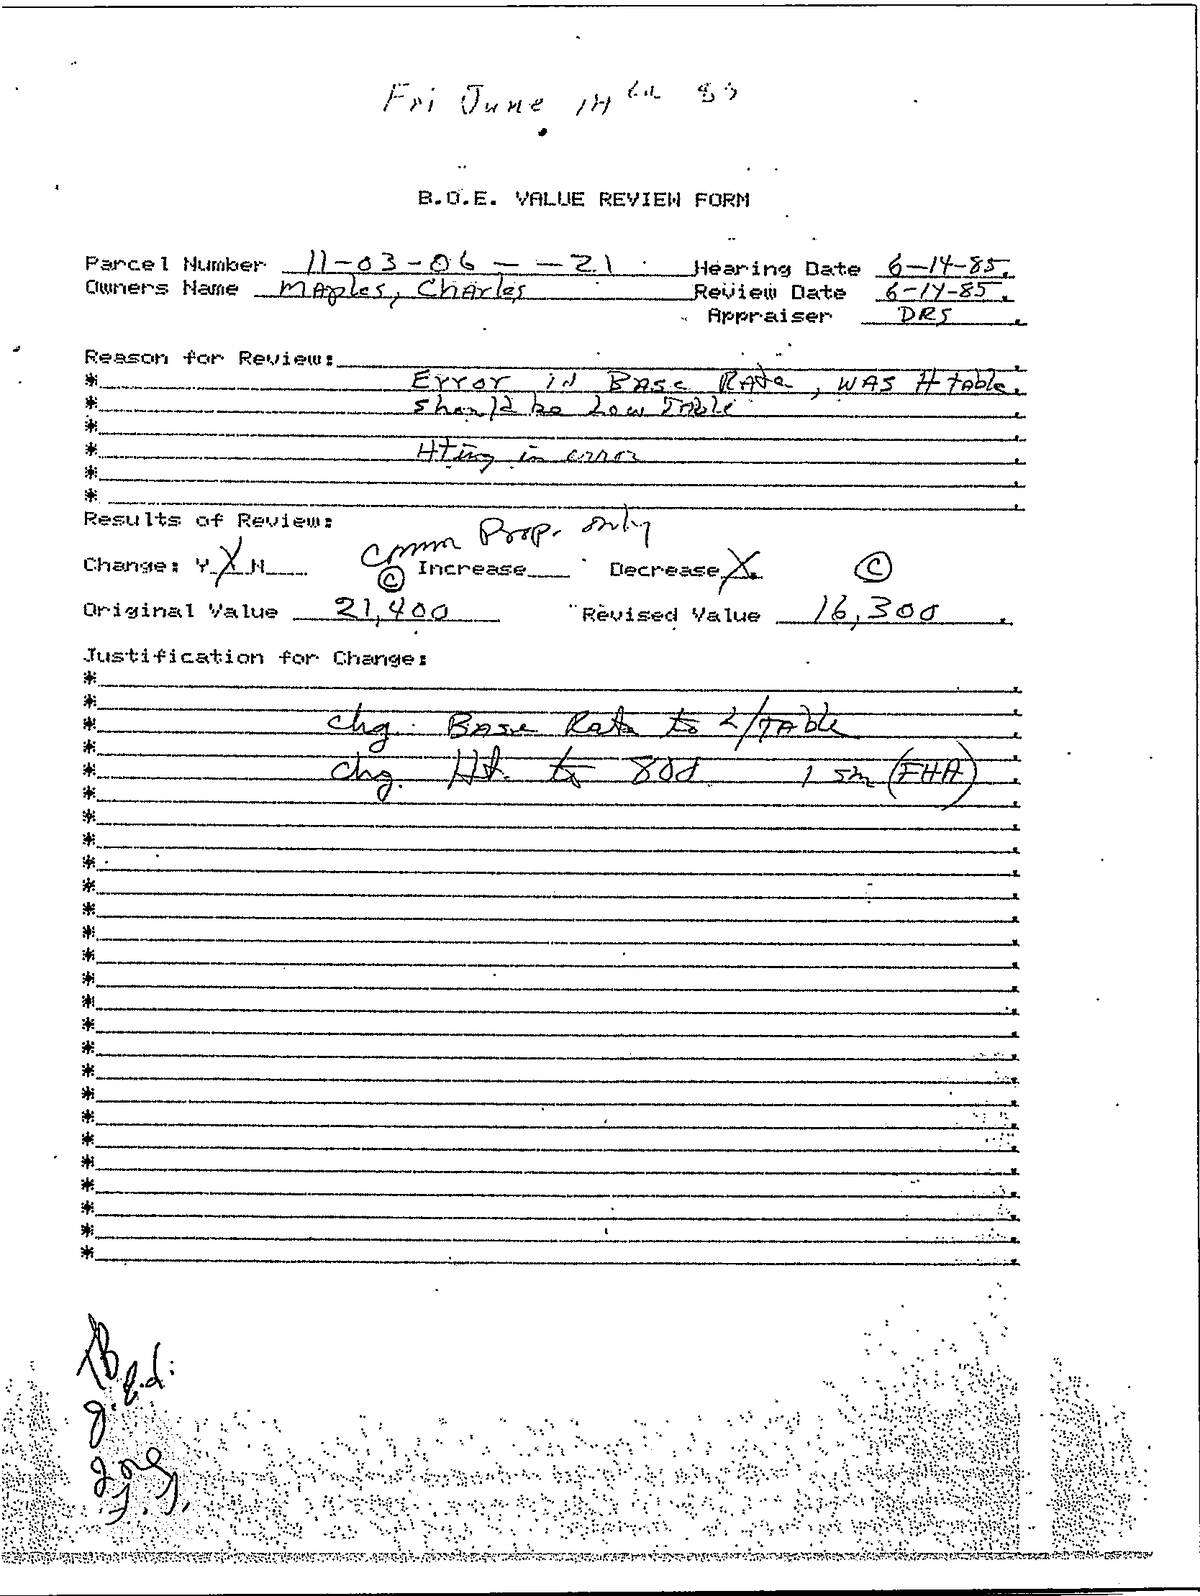 Fri June 14th 85
B.O.E. VALUE REVIEW FORM
Parcel Number 11-03-06 - -21 Hearing Date 6-14-85.
Owners Name Maples, Charles Review Date 6-14-85.
Appraiser DRS.
Reason for Review:
* Error in Base Rate, was H table.
* should be Low Table
*
* Hting in error
*
*
Results of Review:
Comm Prop. only
Change: Y X N Ⓒ Increase Decrease X. Ⓒ
Original Value 21,400 Revised Value 16,300
Justification for Change:
*
*
* chg. Base Rate to L/Table
*
* chg. Ht. to 800 1 sm (FHA)
*
*
*
*
*
*
*
*
*
*
*
*
*
*
*
*
*
*
*
*
*
TB